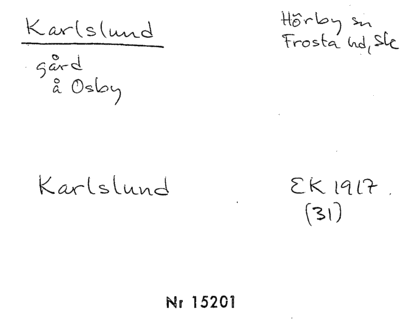 Karlslund
Hörby sn
Frosta hd, Sk
gård
å Osby
Karlslund
EK 1917.
(31)
Nr 15201